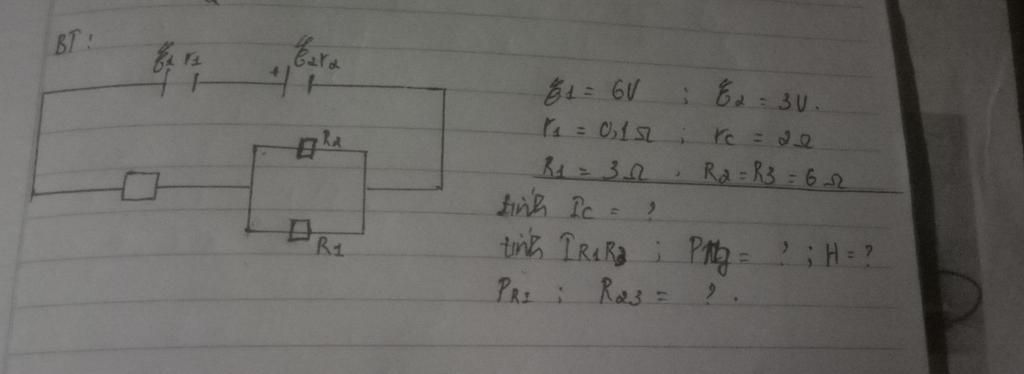 BT:
ξ1 r1
+ ξ2 r2
R2
R1
ξ1 = 6V ; ξ2 = 3V.
r1 = 0,1Ω ; rc = 2Ω
R1 = 3Ω , R2 = R3 = 6Ω
tính Ic = ?
tính IR1R2 ; PNg = ? ; H = ?
PR1 ; R23 = ? .